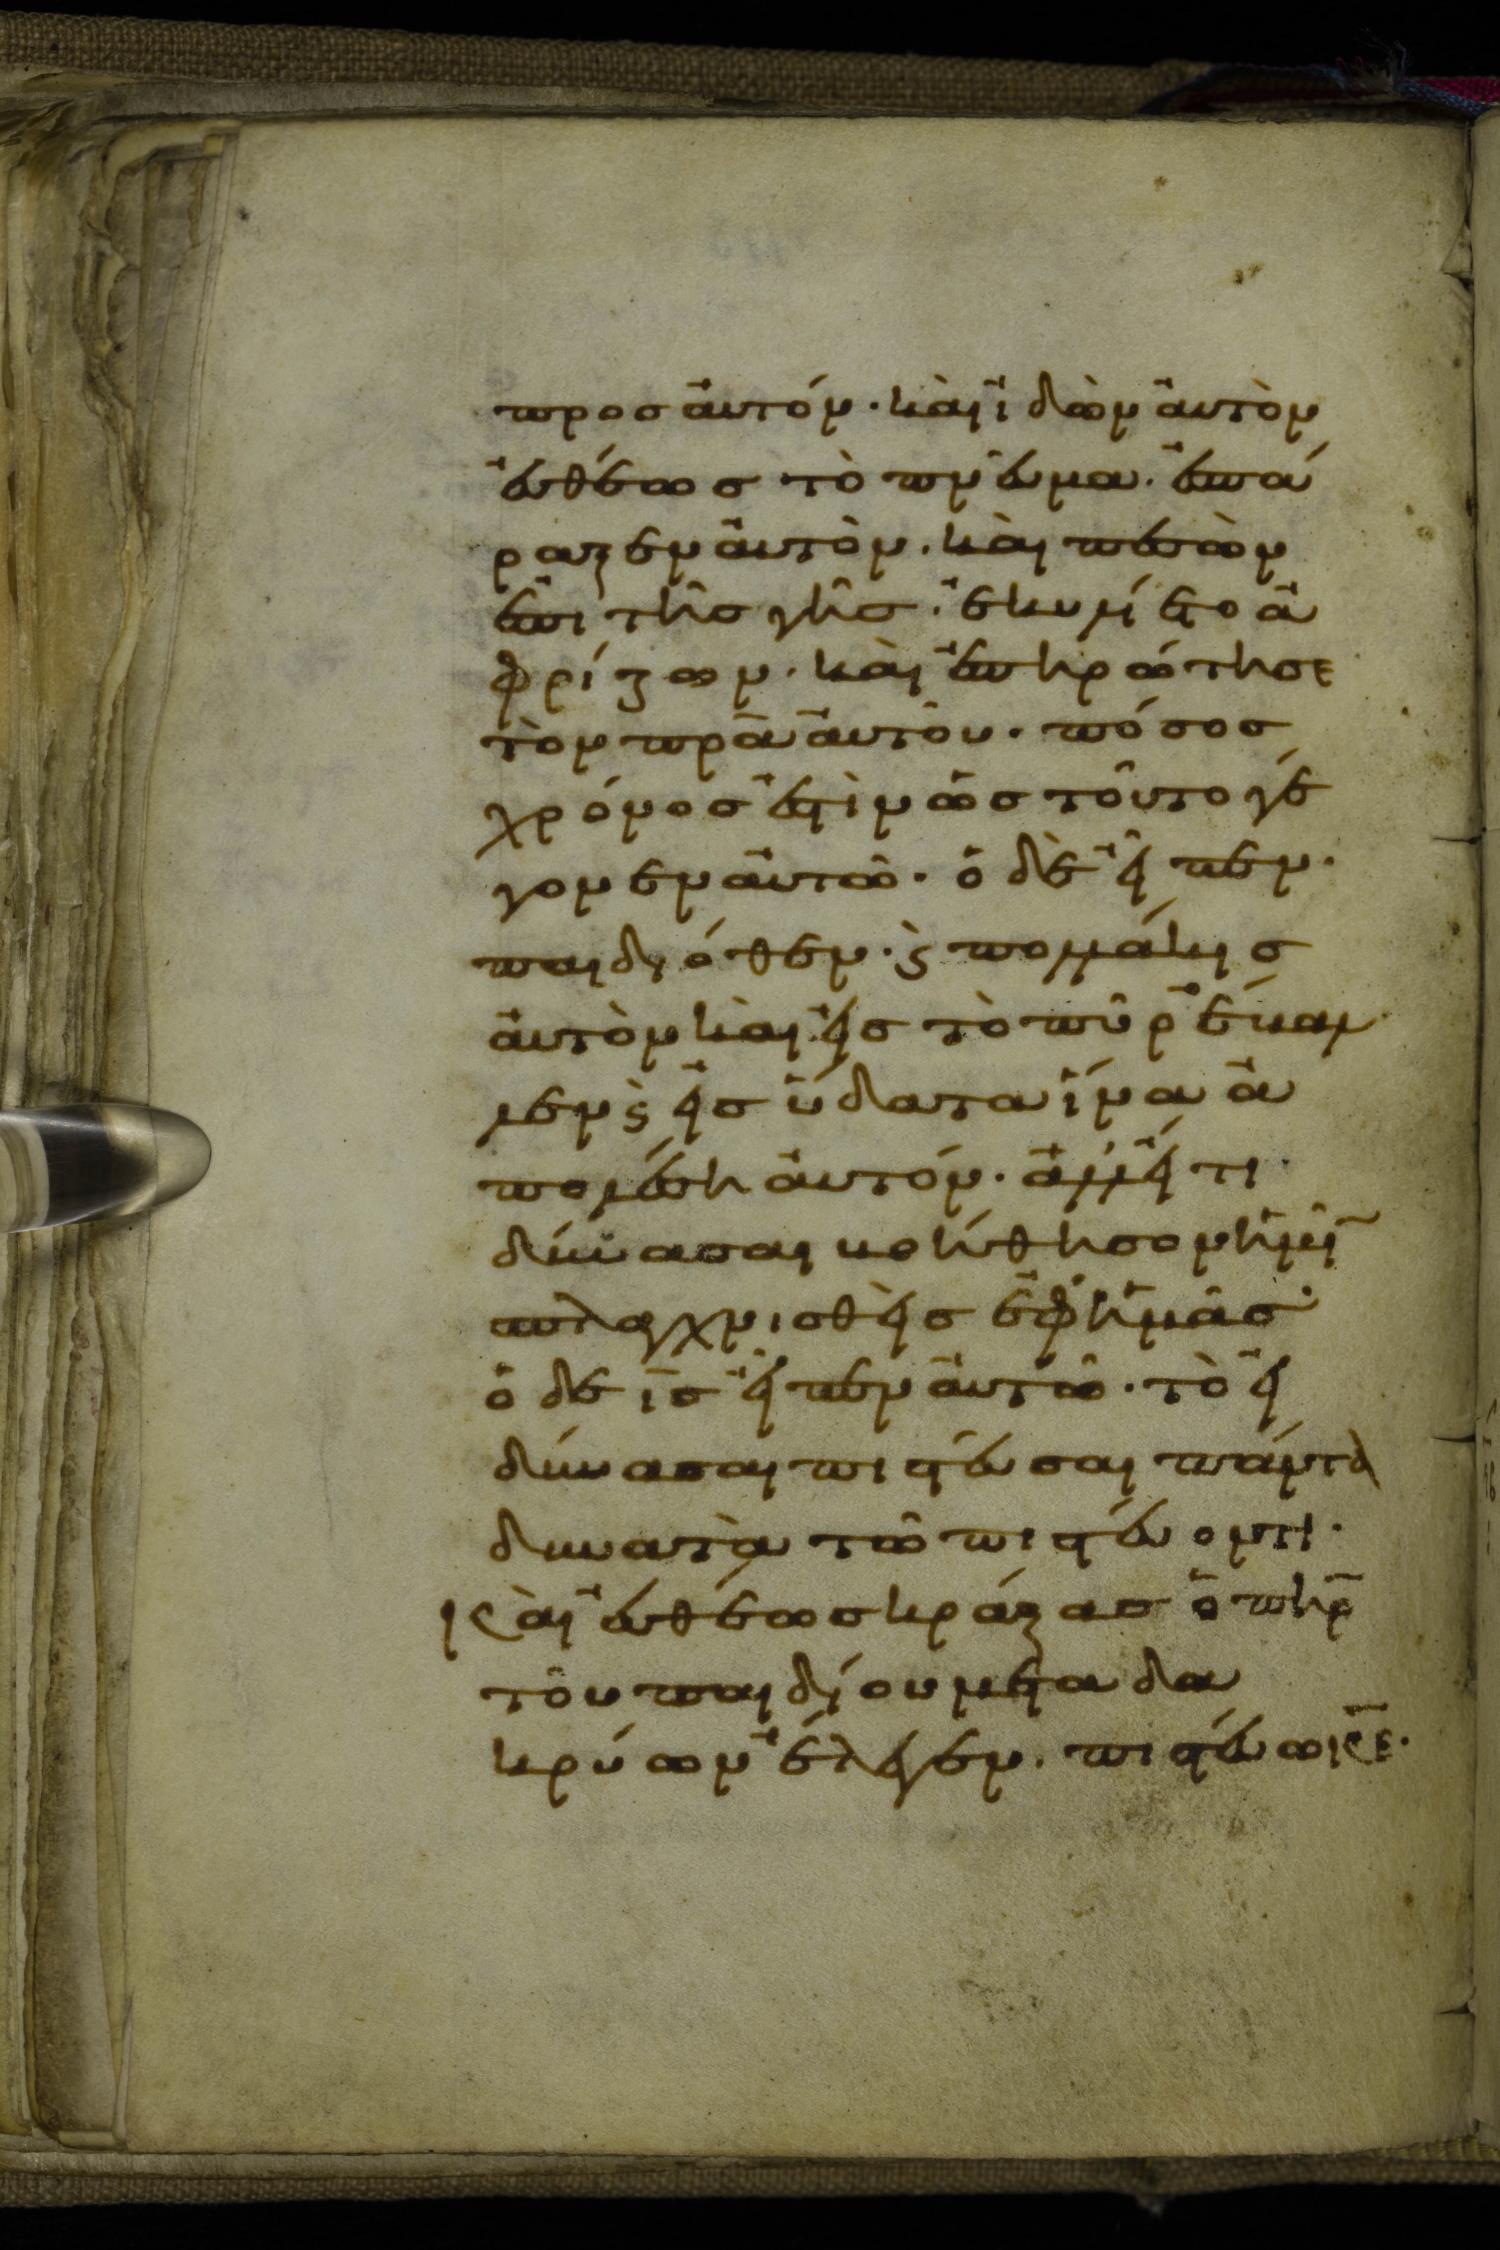 προσ αὐτόν · κὰι ἰδὼν ἀυτὸν
ἐυθέωσ τὸ πνεῦμα · ἐσπά
ραξεν ἀυτὸν · κὰι πεσὼν
ἐπι τῆσ γῆσ · ἐκυλίετο ἀ
φρίζων · κὰι ἐπηρώτησε
τὸν πρ̄α ἀυτοῦ · πόσοσ
χρόνοσ ἐστὶν ὡσ τοῦτο γέ
γονεν ἀυτῶ · ὁ δὲ εἶπεν ·
παιδιόθεν · ϗ πολλάκισ
ἀυτὸν κὰι εἰσ τὸ πῦρ ἔβαλ
λεν ϗ εἰσ ὕδατα ἵνα ἀ
πολέση ἀυτόν · ἀλλ' εἴ τι
δύνασαι βοήθησον ἡμῖ̄
σπλαγχνισθεὶσ ἐφ' ἡμᾶσ ·
ὁ δε ι̅σ̅ εἶπεν ἀυτῶ · τὸ εἰ
δύνασαι πιστεῦσαι πάντα
δυνατὰ τῶ πιστέυοντι ·
κὰι ἐυθέωσ κράξασ ὁ π̅η̅ρ̅
τοῦ παιδίου μετα δα
κρύων ἔλεγεν · πιστέυω κ̅ε̅ ·